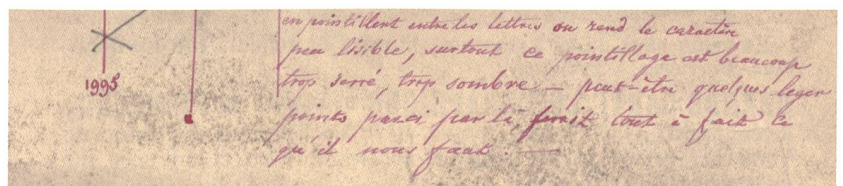 en pointillant entre les lettres on rend le caractère
peu lisible, surtout ce pointillage est beaucoup
trop serré, trop sombre — peut-être quelques leger
points parci par là, ferait tout à fait ce
qu'il nous faut. —
1995